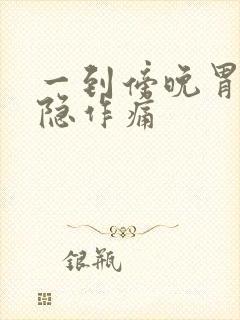 一到傍晚胃
隐作痛
银瓶